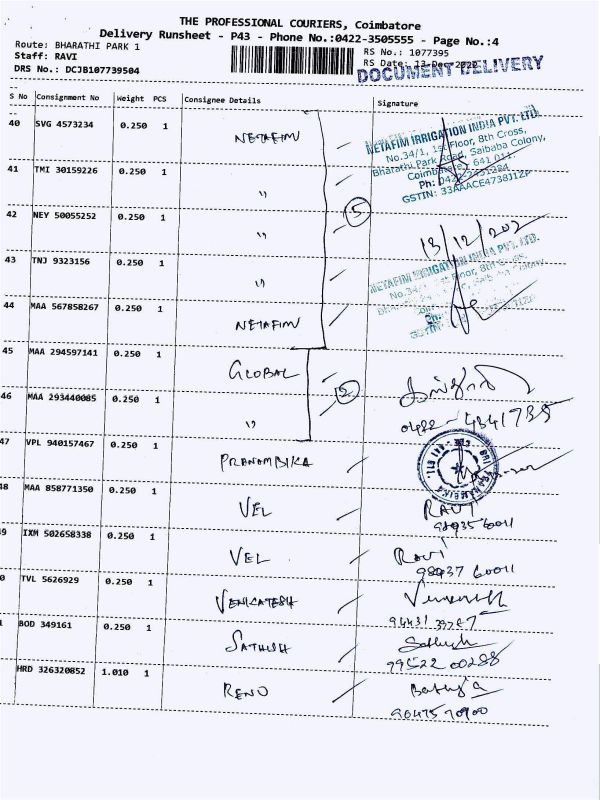 THE PROFESSIONAL COURIERS, Coimbatore
Delivery Runsheet - P43 - Phone No.:0422-3505555 - Page No.:4
Route: BHARATHI PARK 1
RS No.: 1077395
Staff: RAVI
RS Date: 13-Dec-2020
DRS No.: DCJB107739504
DOCUMENT DELIVERY
S No Consignment No Weight PCS Consignee Details Signature
40 SVG 4573234 0.250 1 NETAFIM
NETAFIM IRRIGATION INDIA PVT. LTD.
No.34/1, 1st Floor, 8th Cross,
Bharathi Park Road, Saibaba Colony,
Coimbatore, 641 011.
Ph: 0422-2431284
GSTIN: 33AAACE4738J1ZP
41 TMI 30159226 0.250 1 "
5
42 NEY 50055252 0.250 1 "
13/12/202
43 TNJ 9323156 0.250 1 "
NETAFIM IRRIGATION INDIA PVT. LTD.
44 MAA 567858267 0.250 1 NETAFIM
45 MAA 294597141 0.250 1 GLOBAL
2
46 MAA 293440085 0.250 1 "
0422-4341735
47 VPL 940157467 0.250 1 PRANAMBIKA
48 MAA 858771350 0.250 1 VEL RAVI
9 IXM 502658338 0.250 1 VEL Ravi
98437 60011
0 TVL 5626929 0.250 1 VENKATESH
BOD 349161 0.250 1 SATHISH Sathish
99522 00288
HRD 326320852 1.010 1 RENO